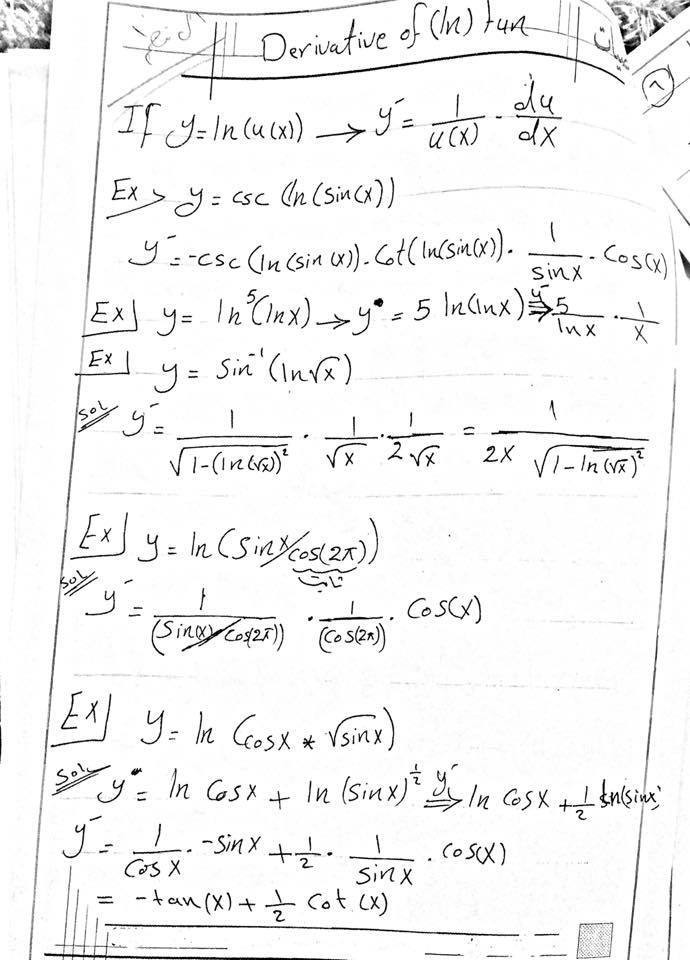 Derivative of (ln) fun
If y = ln(u(x)) → y' = 1/u(x) · du/dx
Ex > y = csc (ln(sin(x))
y' = -csc(ln(sin(x)) . cot(ln(sin(x)) · 1/sinx · cos(x)
Ex] y = ln⁵(lnx) → y' = 5 ln(lnx) ⇒y' 5/lnx · 1/x
Ex] y = sin⁻¹(ln√x)
sol y' = 1/√(1-(ln(√x))²) · 1/√x · 1/2√x = 1/2x √(1-ln(√x)²)
Ex] y = ln(sinx/cos(2π))
ثابت
sol y' = 1/(sin(x)/cos(2π)) · 1/(cos(2π)) · cos(x)
Ex] y = ln (cosx * √sinx)
sol y' = ln cosx + ln(sinx)^½ ⇒y' ln cosx + ½ ln(sinx)
y' = 1/cosx · -sinx + ½ · 1/sinx · cos(x)
= -tan(x) + ½ cot(x)